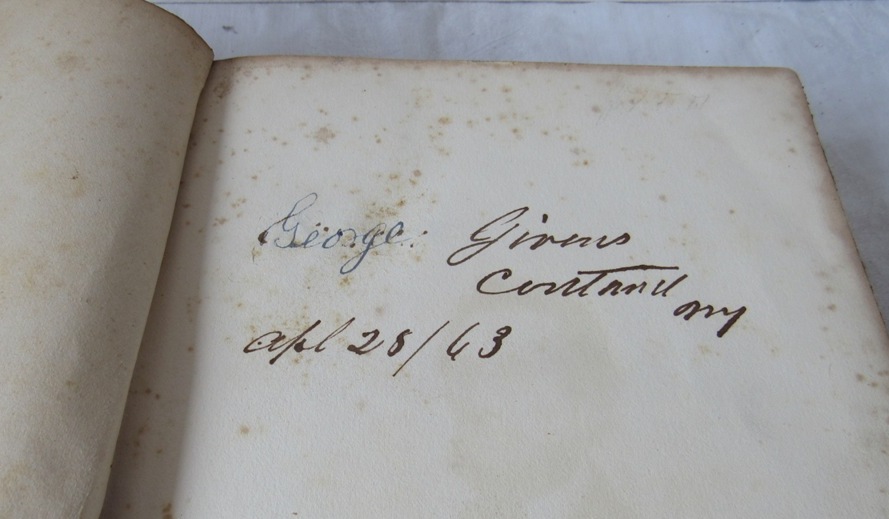 George. Givens
Cortland
NY
Apl 28/63